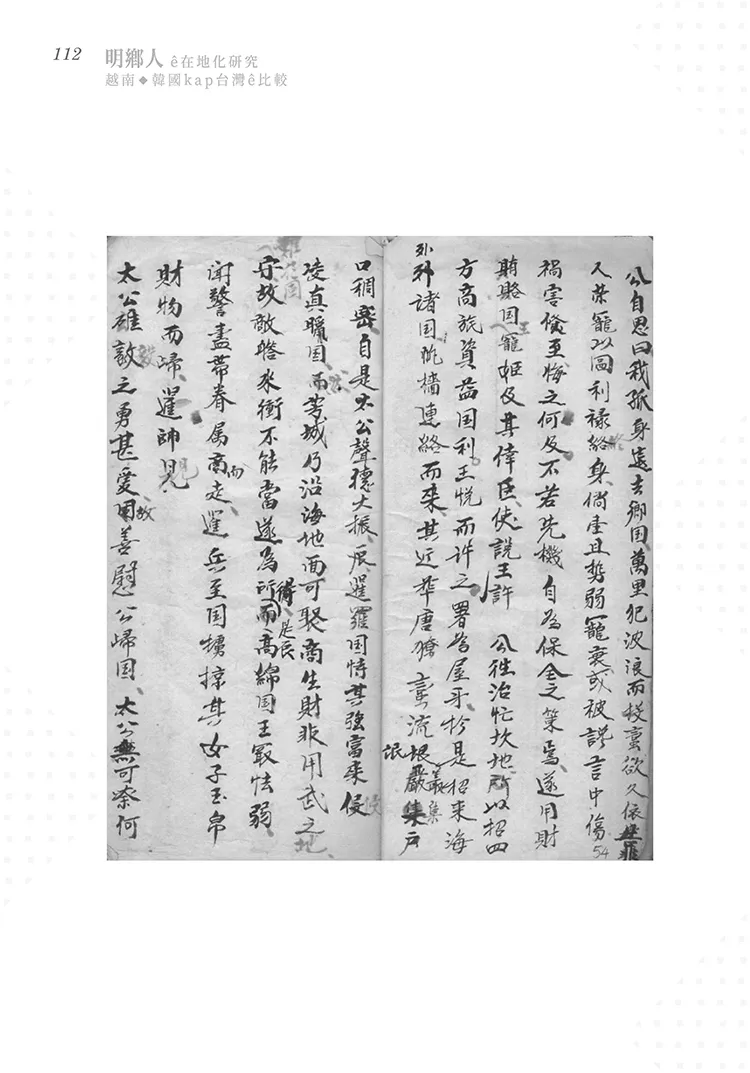 112
明鄉人 ê在地化研究
越南◆韓國kap台灣ê比較
公自思曰我孤身遠去鄉国萬里犯波浪而投蛮欲久依
人荣寵以圖利禄終身倘尘且势弱寵衰或被謗言中傷
禍害倐至悔之何及不若先機自為保全之策焉遂用財
賄賂国寵姬及其倖臣使説王許 公往治忙坎地所以招四
方商旅資益国利王悦而許之署為屋牙於是招来海
外諸国帆檣連絡而来其近華唐獠蛮流民叢集戸
口稠密自是太公聲德大振辰暹羅国恃其強富来侵
凌真臘国而芳城乃沿海地面可娶商生財非用武之地
守故敵瞻来衝不能當遂為所得是辰高綿国王最怯弱
闻警盡帶眷属而走暹兵至国擄掠其女子玉帛
財物而歸暹帥見
太公雄毅之勇甚愛故善慰 公歸国太公無可奈何
54